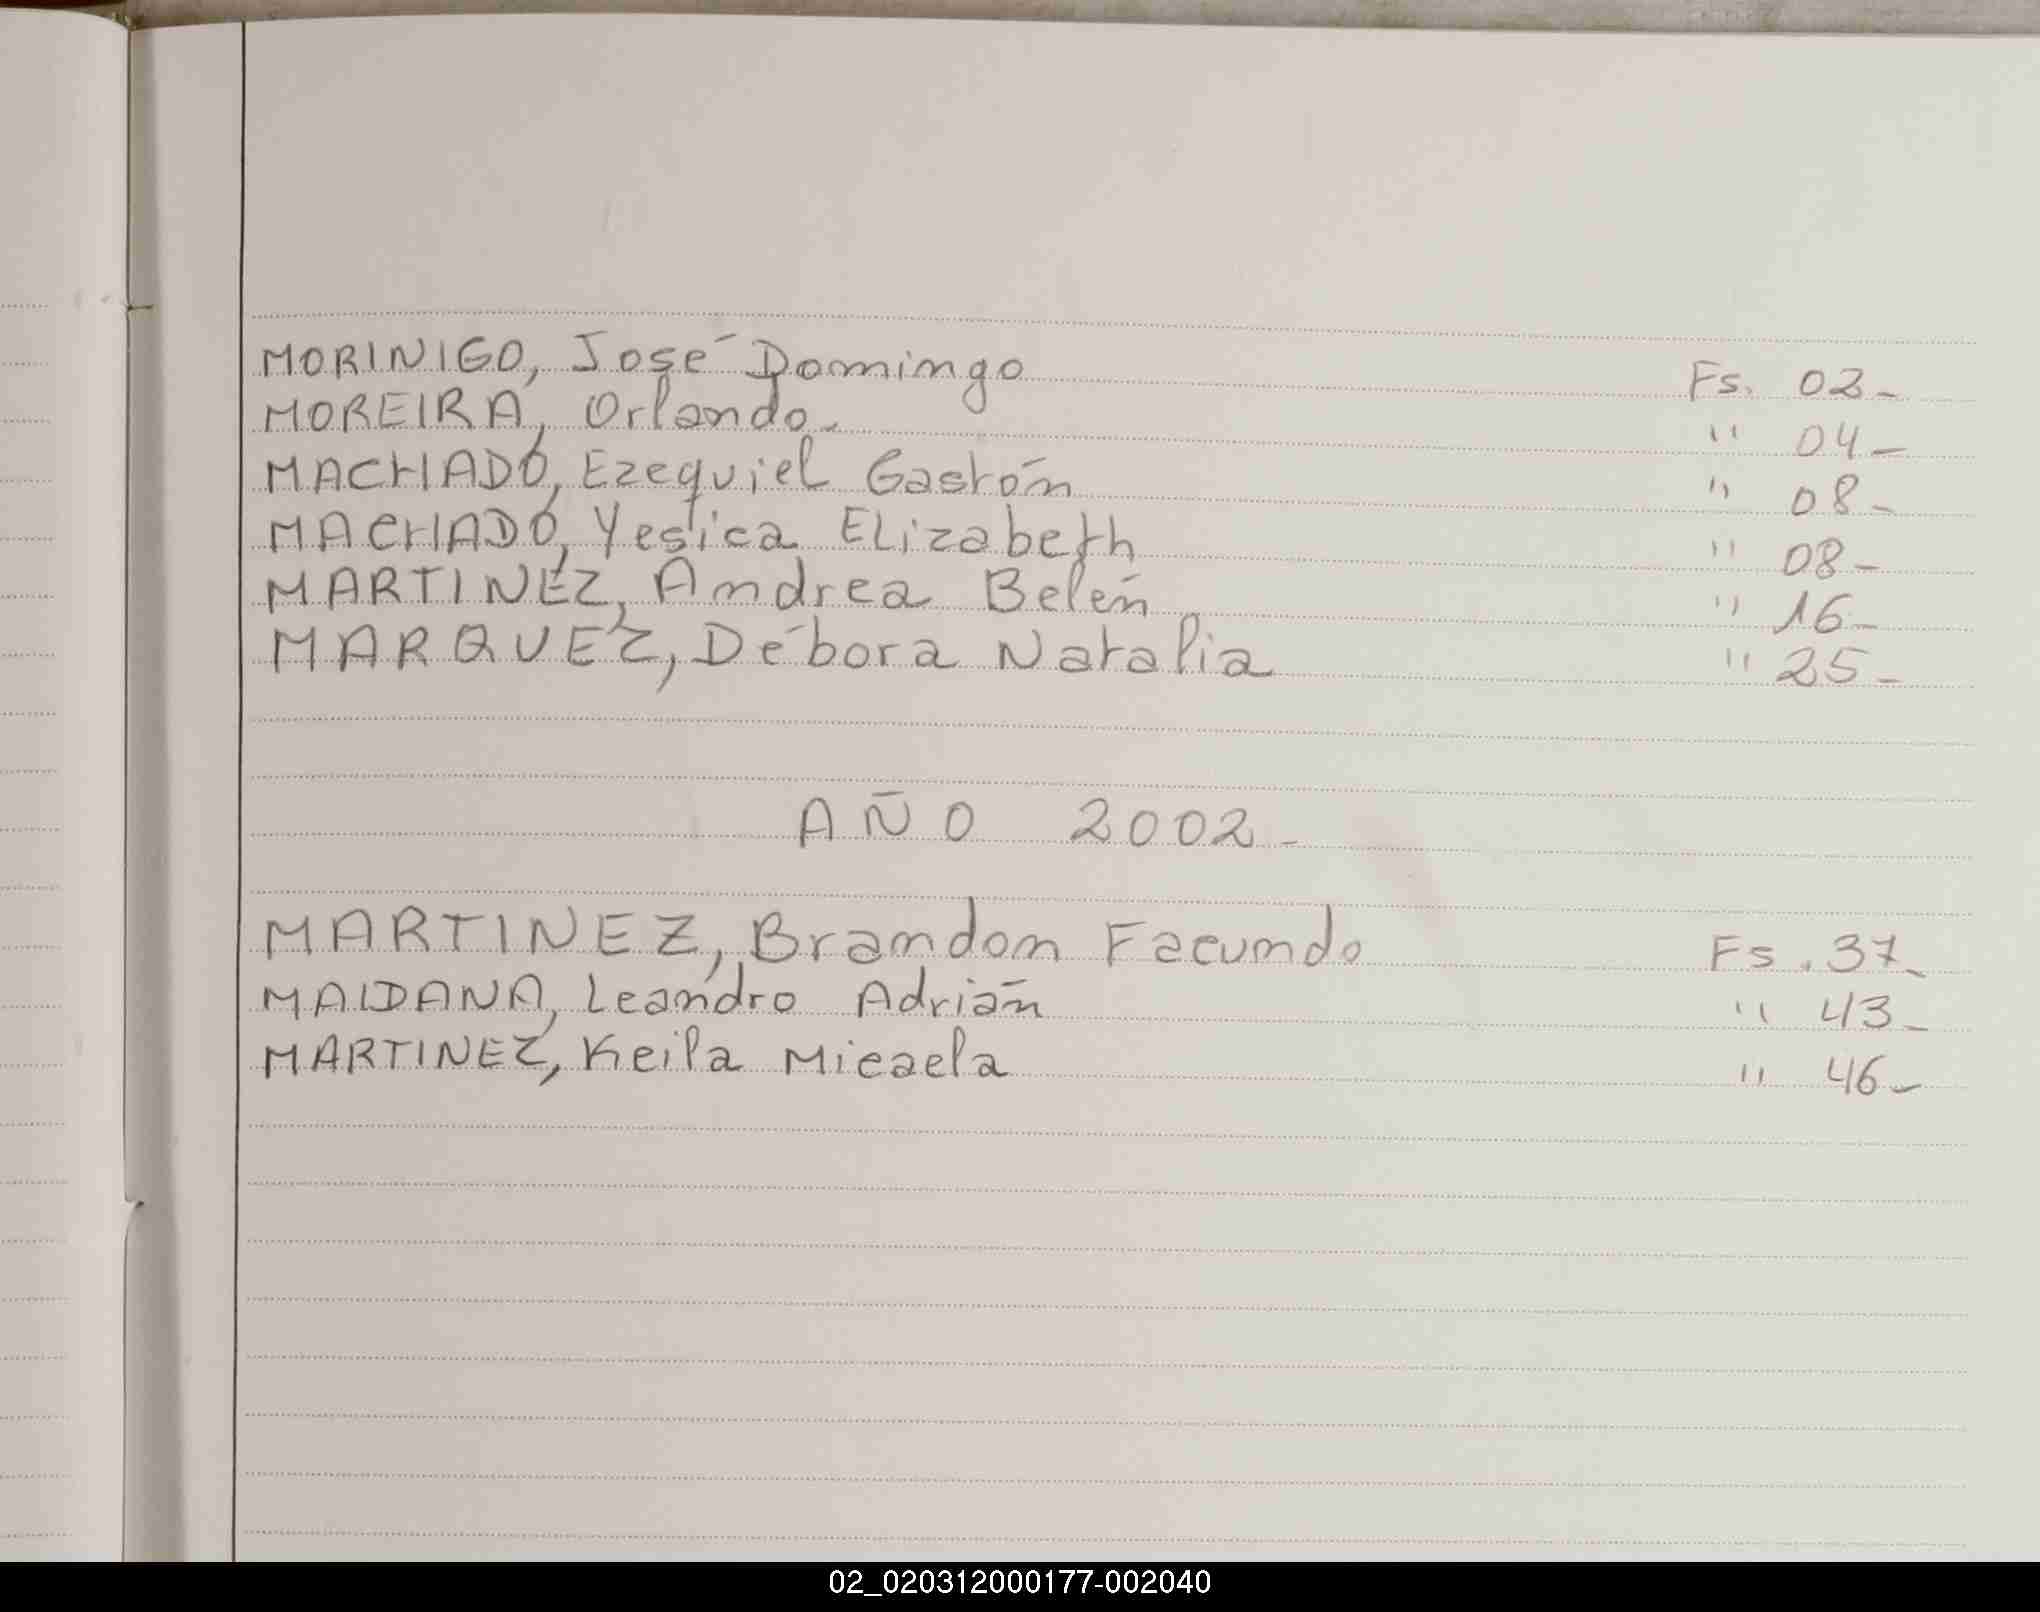 MORINIGO, José Domingo Fs. 02-
MOREIRA, Orlando- " 04-
MACHADO, Ezequiel Gastón " 08-
MACHADO, Yesica ELizabeth " 08-
MARTINEZ, Andrea Belén " 16-
MARQUEZ, Débora Natalia " 25-
AÑO 2002-
MARTINEZ, Brandon Facundo Fs. 37-
MAIDANA, Leandro Adrián " 43-
MARTINEZ, Keila Micaela " 46-
02_020312000177-002040